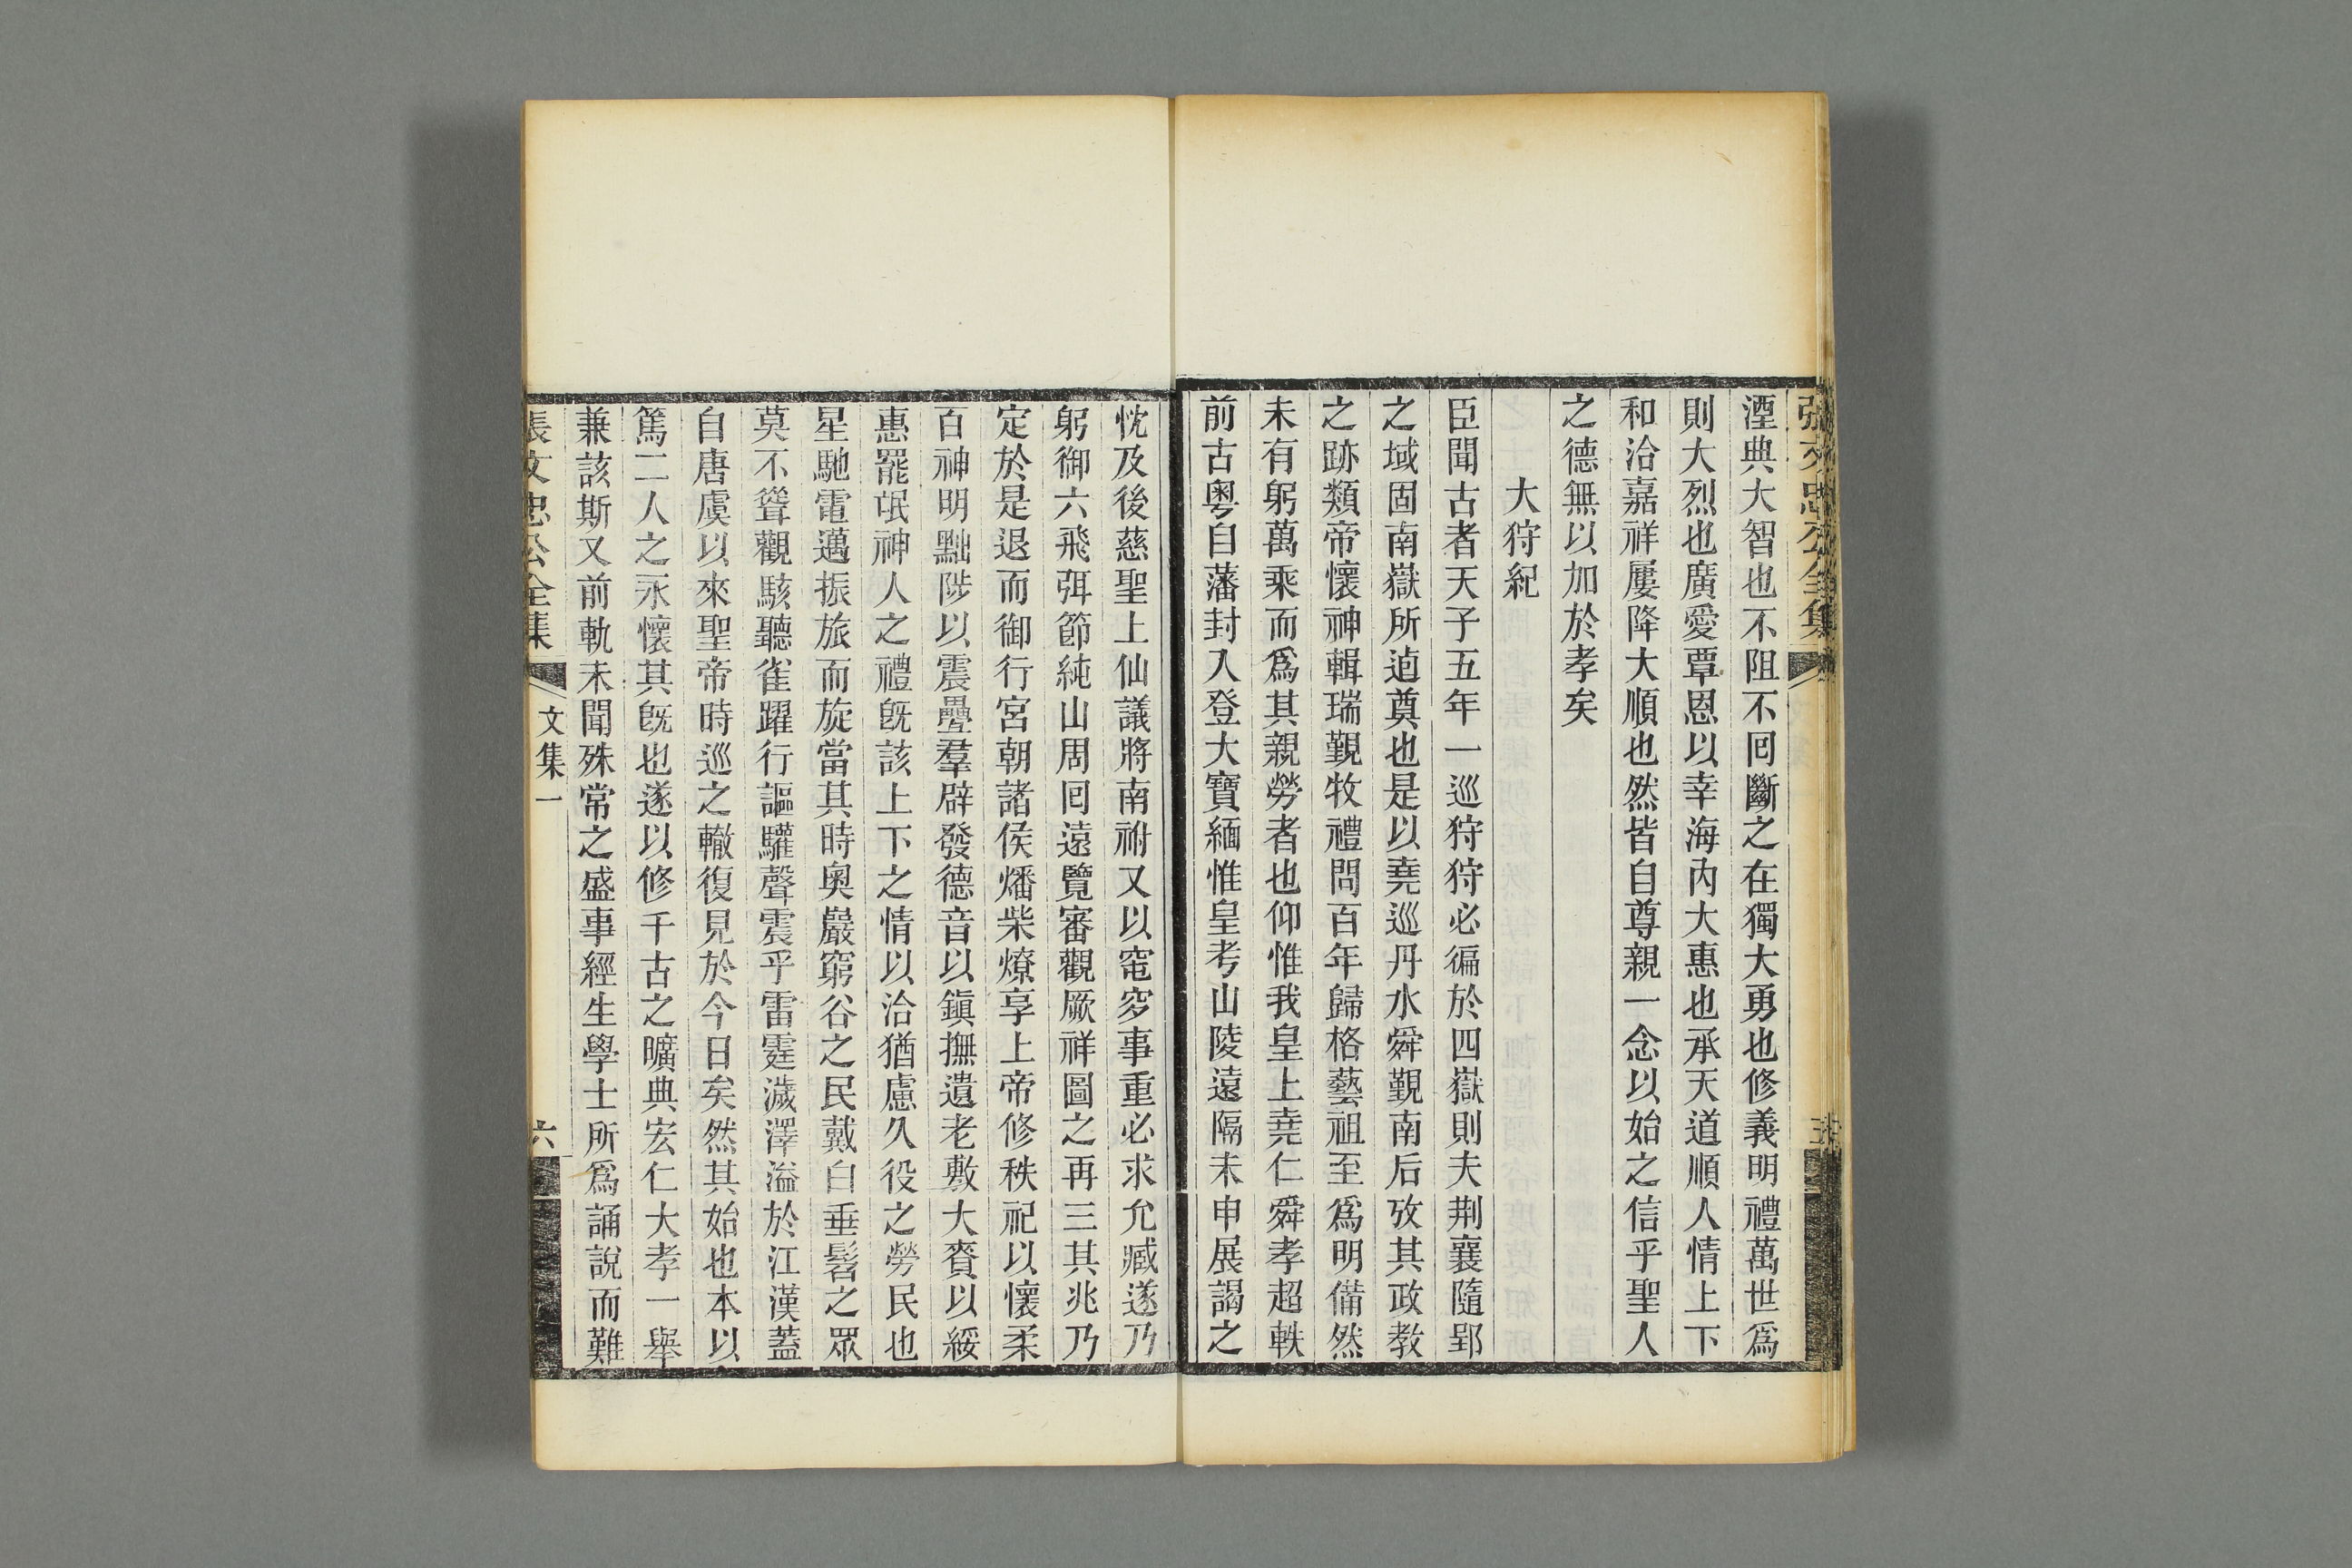 張文忠公全集
湮典大智也不阻不囘斷之在獨大勇也修義明禮萬世爲
則大烈也廣愛覃恩以幸海內大惠也承天道順人情上下
和洽嘉祥屢降大順也然皆自尊親一念以始之信乎聖人
之德無以加於孝矣
大狩紀
臣聞古者天子五年一巡狩狩必徧於四嶽則夫荆襄隨郢
之域固南嶽所逌奠也是以堯巡丹水舜覲南后攷其政教
之跡類帝懷神輯瑞覲牧禮問百年歸格藝祖至爲明備然
未有躬萬乘而爲其親勞者也仰惟我皇上堯仁舜孝超軼
前古粤自藩封入登大寶緬惟皇考山陵遠隔未申展謁之
忱及後慈聖上仙議將南祔又以窀穸事重必求允臧遂乃
躬御六飛弭節純山周囘遠覽審觀厥祥圖之再三其兆乃
定於是退而御行宮朝諸侯燔柴燎享上帝修秩祀以懷柔
百神明黜陟以震疊羣辟發德音以鎮撫遺老敷大賚以綏
惠罷氓神人之禮旣該上下之情以洽猶慮久役之勞民也
星馳電邁振旅而旋當其時奧巖窮谷之民戴白垂髫之眾
莫不聳觀駭聽雀躍行謳驩聲震乎雷霆濊澤溢於江漢蓋
自唐虞以來聖帝時巡之轍復見於今日矣然其始也本以
篤二人之永懷其旣也遂以修千古之曠典宏仁大孝一舉
兼該斯又前軌未聞殊常之盛事經生學士所爲誦說而難
張文忠公全集
文集一
六